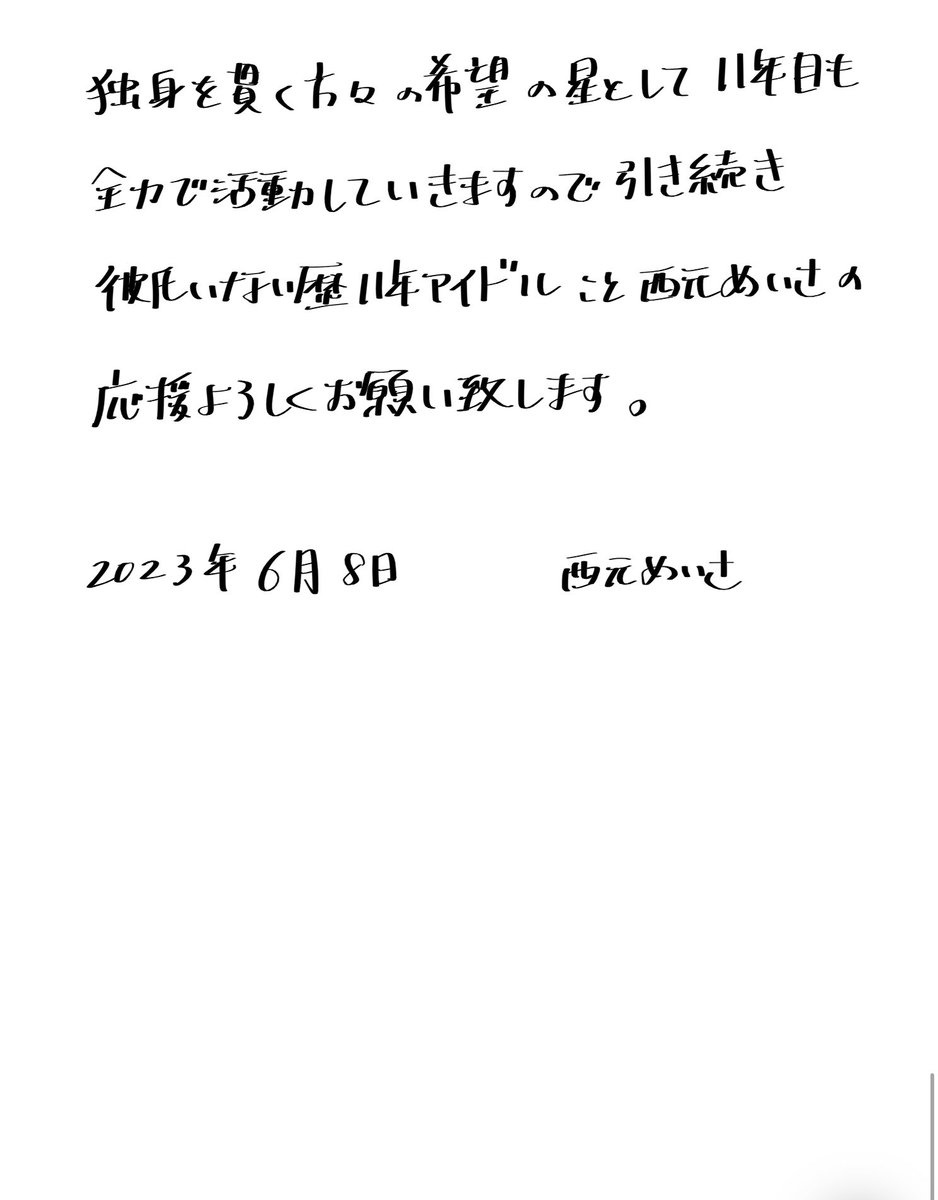 独身を貫く方々の希望の星として11年目も
全力で活動していきますので引き続き
彼氏いない歴11年アイドルこと西元めいさの
応援よろしくお願い致します。
2023年6月8日 西元めいさ